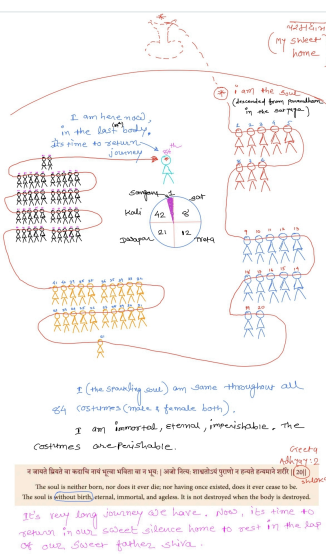 परमधाम
(My sweet
home
i am the soul
(descended from paramdham
in the satyuga)
1 2 3 4 5
8 7 6
9 10 11 12 13
18 17 16 15 14
19 20
21
I am here now,
in the last body.
its time to return
journey
84th
Sangam 1
Sat
8
Kali 42
21
Dwapar
12
Treta
I (the sparkling soul) am same throughout all
84 costumes (male & female both).
I am immortal, eternal, imperishable. The
costumes are perishable.
Geeta
Adhyay: 2
shloka
न जायते म्रियते वा कदाचि नायं भूत्वा भविता वा न भूयः। अजो नित्यः शाश्वतोऽयं पुराणो न हन्यते हन्यमाने शरीरे ||20||
The soul is neither born, nor does it ever die; nor having once existed, does it ever cease to be.
The soul is without birth, eternal, immortal, and ageless. It is not destroyed when the body is destroyed.
It's very long journey we have. Now, its time to
return in our sweet silence home to rest in the lap
of our sweet father shiva.